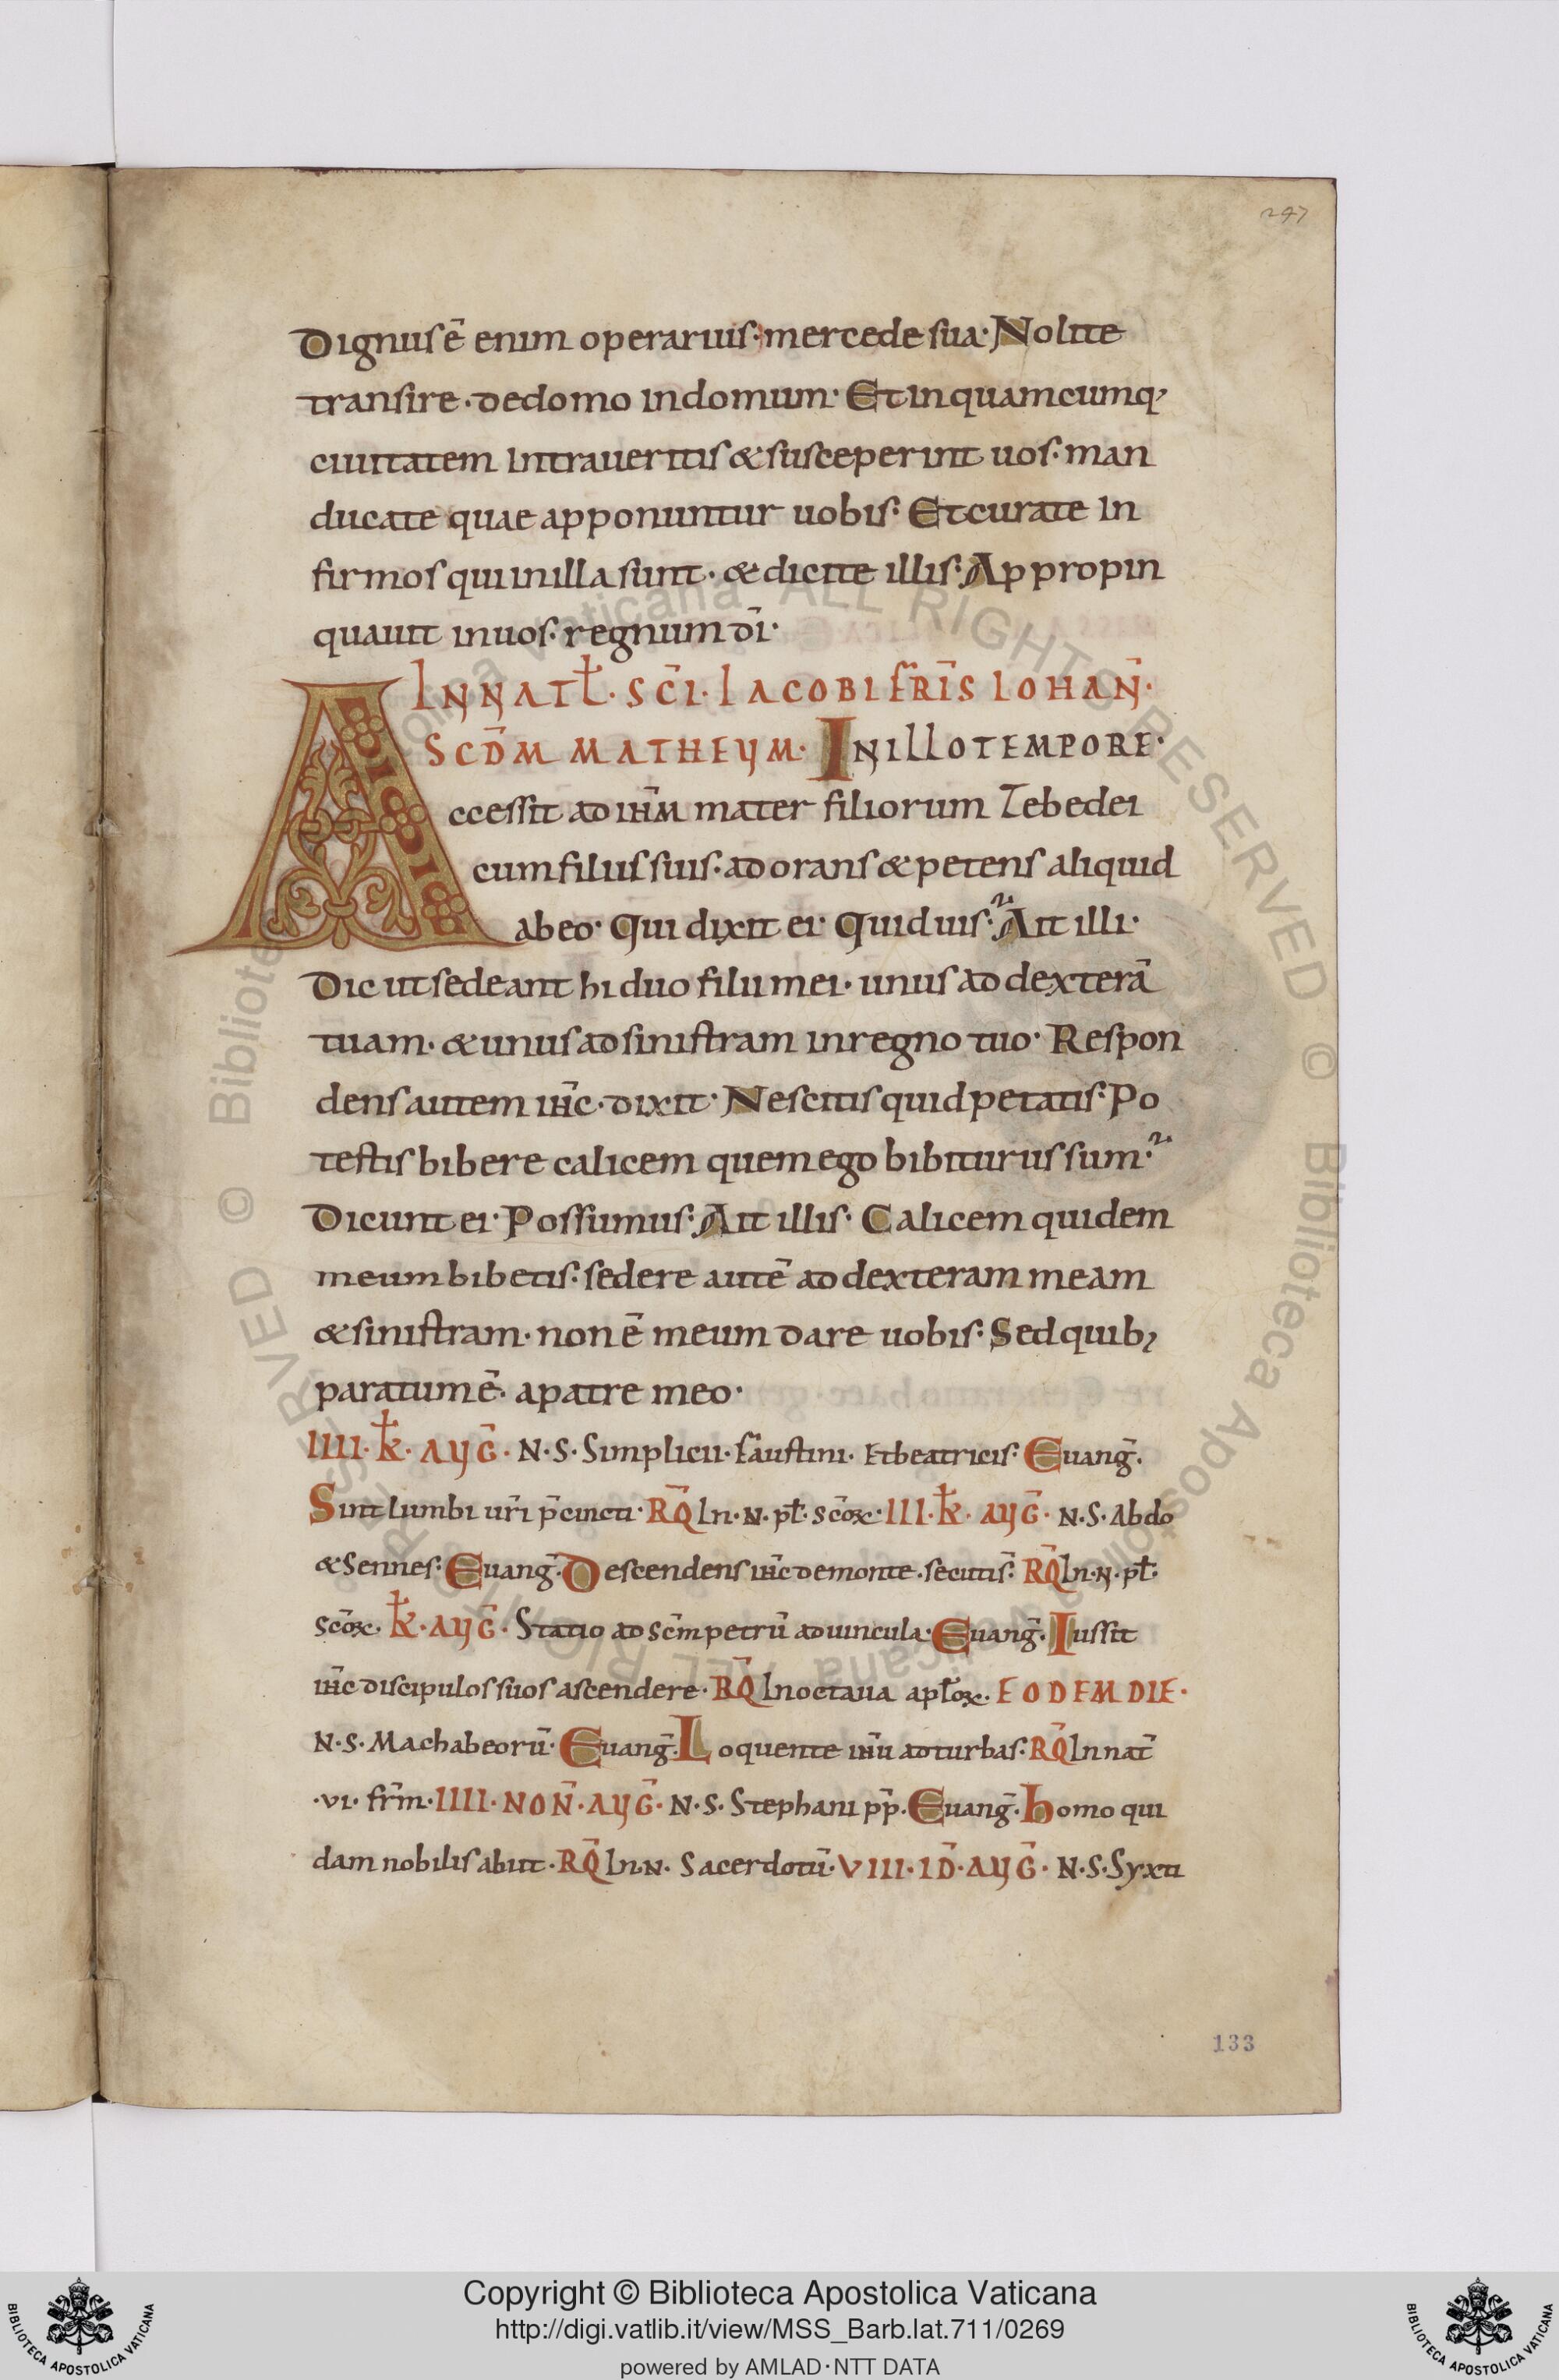 247
Dignus ē enim operarius· mercede sua· Nolite
transire· de domo in domum· Et in quamcumq;
ciuitatem intraueritis & susceperint uos· man
ducate quae apponuntur uobis· Et curate in
firmos qui in illa sunt· & dicite illis· Appropin
quauit in uos· regnum dī·
IN NATƚ· SC̄I· IACOBI FR̄IS IOHAN̄·
SCD̄M MATHEUM· IN ILLO TEMPORE·
Accessit ad ih̄m mater filiorum Zebedei
cum filiis suis· adorans & petens aliquid
ab eo· Qui dixit ei· Quid uis· Ait illi·
Dic ut sedeant hi duo filii mei· unus ad dexterā
tuam· & unus ad sinistram in regno tuo· Respon
dens autem ih̄c· dixit· Nescitis quid petatis· Po
testis bibere calicem quem ego bibiturus sum·
Dicunt ei· Possumus· Ait illis· Calicem quidem
meum bibetis· sedere autē ad dexteram meam
& sinistram· non ē meum dare uobis· Sed quib;
paratum ē· a patre meo·
IIII· k̄· AUḠ· N·S· Simplicii· faustini· Et beatricis· Euanḡ·
Sint lumbi ur̄i p̄cincti· RQ̄ In·N·pƚ· scōꝝ· III· k̄· AUḠ· N·S· Abdo
& Sennes· Euanḡ· Descendens ih̄c de monte· secutis̄· RQ̄ In·N·pƚ·
scōꝝ· k̄· AUḠ· Statio ad sc̄m petrū ad uincula· Euanḡ· Iussit
ih̄c discipulos suos ascendere· RQ̄ In octaua apƚoꝝ· EODEM DIE·
N·S· Machabeorū· Euanḡ· Loquente ih̄u ad turbas· RQ̄ In nat̄
·VI· fr̄m· IIII· NON̄· AUḠ· N·S· Stephani pp̄· Euanḡ· Homo qui
dam nobilis abiit· RQ̄ In·N· Sacerdotū· VIII· ID̄· AUḠ· N·S· Syxti
133
© Biblioteca Apostolica Vaticana ALL RIGHTS RESERVED © Biblioteca Apostolica Vaticana ALL RIGHTS RESERVED
Copyright © Biblioteca Apostolica Vaticana
http://digi.vatlib.it/view/MSS_Barb.lat.711/0269
powered by AMLAD·NTT DATA
BIBLIOTECA APOSTOLICA VATICANA
BIBLIOTECA APOSTOLICA VATICANA